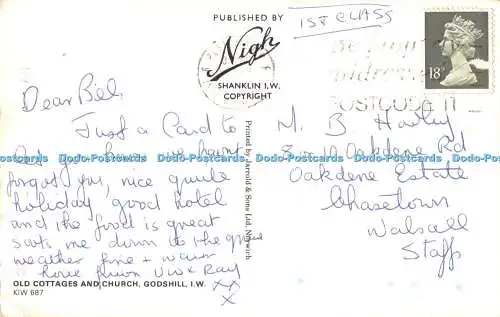 PUBLISHED BY
Nigh
SHANKLIN I.W.
COPYRIGHT
1ST CLASS
18P
POSTCODE IT
Dear Bel,
Just a Card to
haven't
forgot you, nice quite
holiday good hotel
and the food is great
suits me down to the ground
weather fine + warm
love from Viv x Ray
XX
X
Printed by Jarrold & Sons Ltd, Norwich
M. B Hartley
Oakdene Rd
Oakdene Estate
Chasetown
Walsall
Staffs
OLD COTTAGES AND CHURCH, GODSHILL, I.W.
KIW 687
Dodo-Postcards Dodo-Postcards Dodo-Postcards Dodo-Postcards Dodo-Postcards Dodo-Postcards